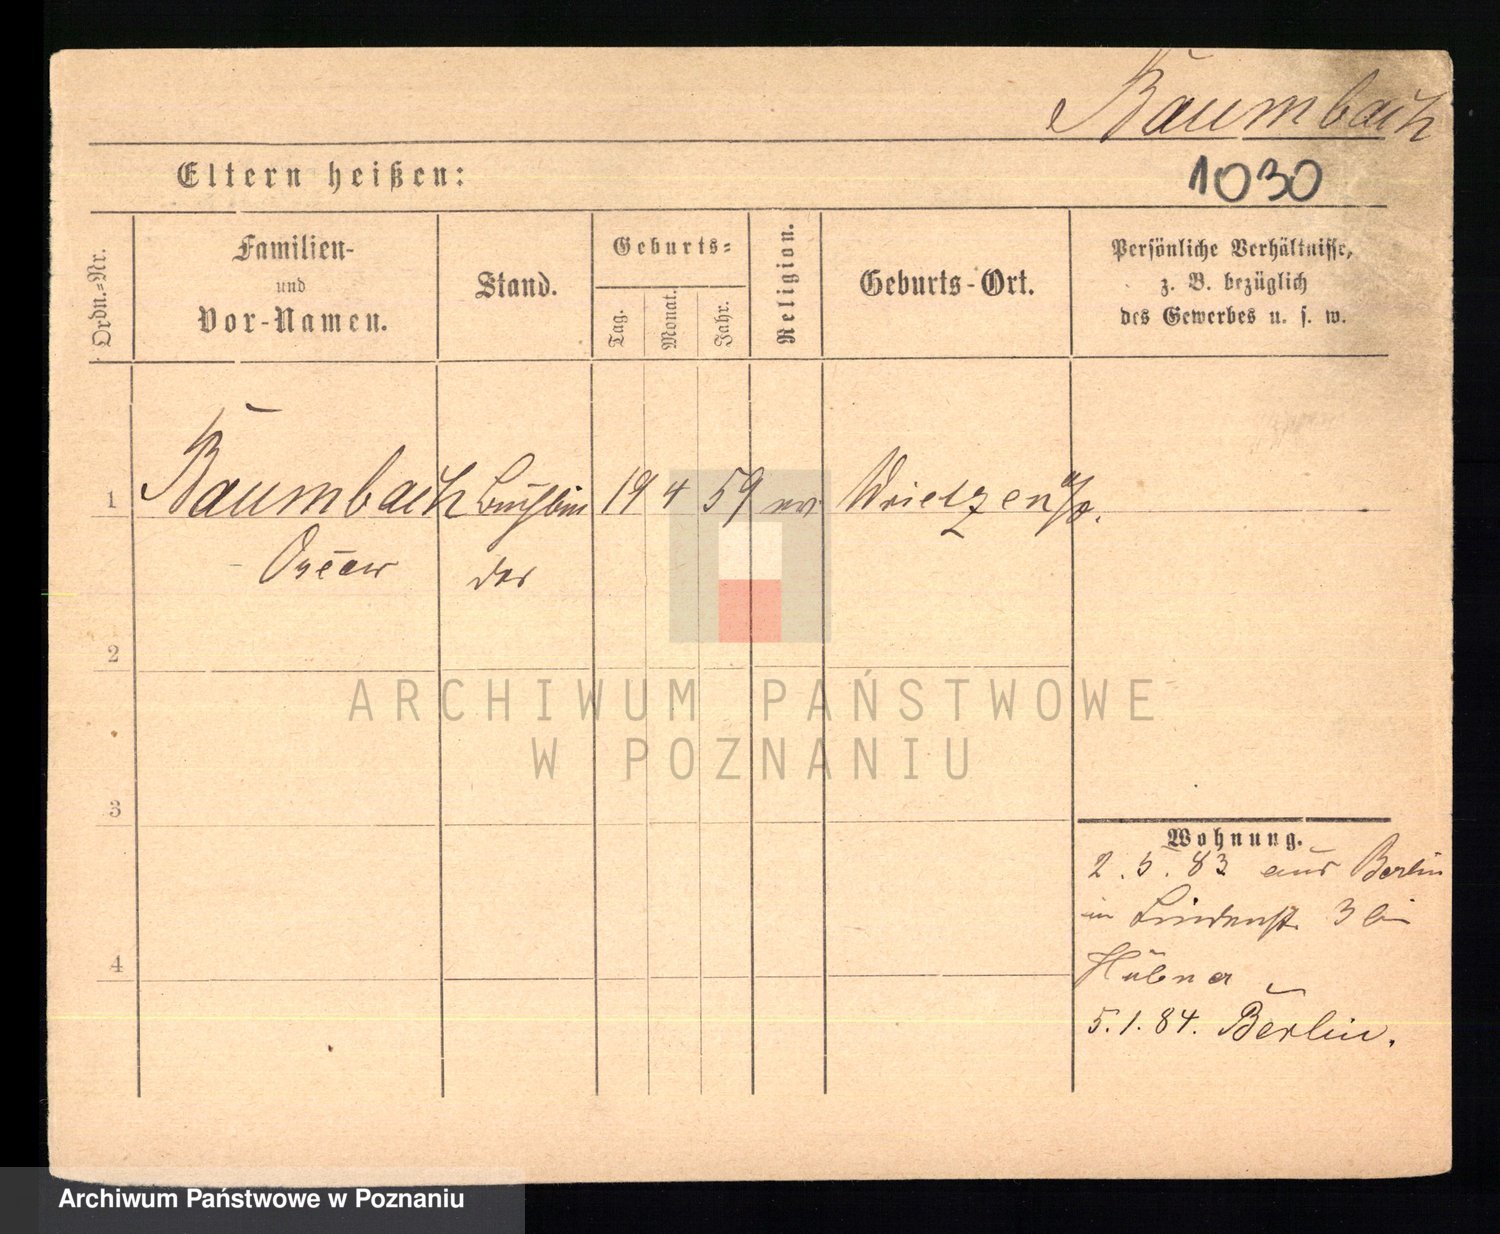 Baumbach
Eltern heißen:
1030
Ordn.=Nr.
Familien-
und
Vor-Namen.
Stand.
Geburts=
Tag.
Monat.
Jahr.
Religion.
Geburts-Ort.
Persönliche Verhältnisse,
z. B. bezüglich
des Gewerbes u. s. w.
1
Baumbach Buchbin 19 4 59 ev Wriezen a/o.
Oscar der
2
ARCHIWUM PAŃSTWOWE
W POZNANIU
3
Wohnung.
2. 5. 83 aus Berlin
in Lindenst. 3 bei
4
Hübner
5. 1. 84. Berlin.
Archiwum Państwowe w Poznaniu